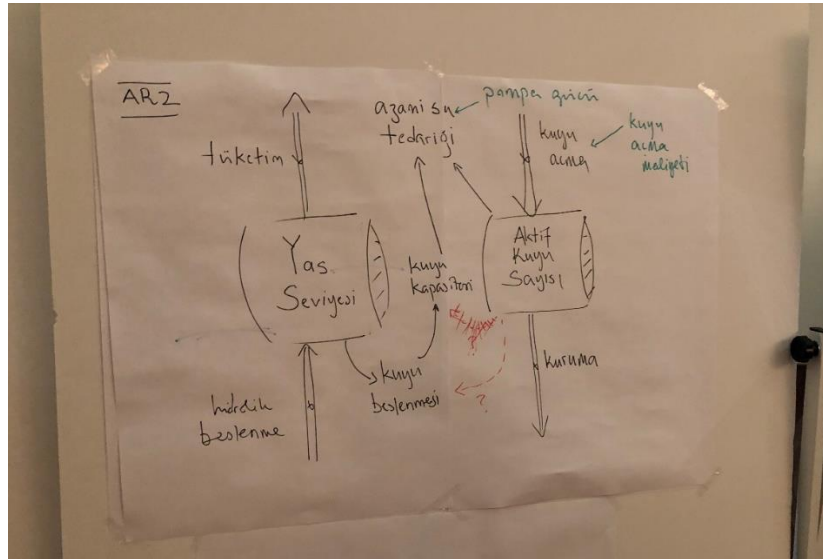 ARZ
tüketim
azami su
tedariği
pompa gücü
kuyu
açma
kuyu
açma
maliyeti
Yas
Seviyesi
kuyu
kapasitesi
Aktif
Kuyu
Sayısı
?
kuyu
beslenmesi
?
kuruma
beslenme